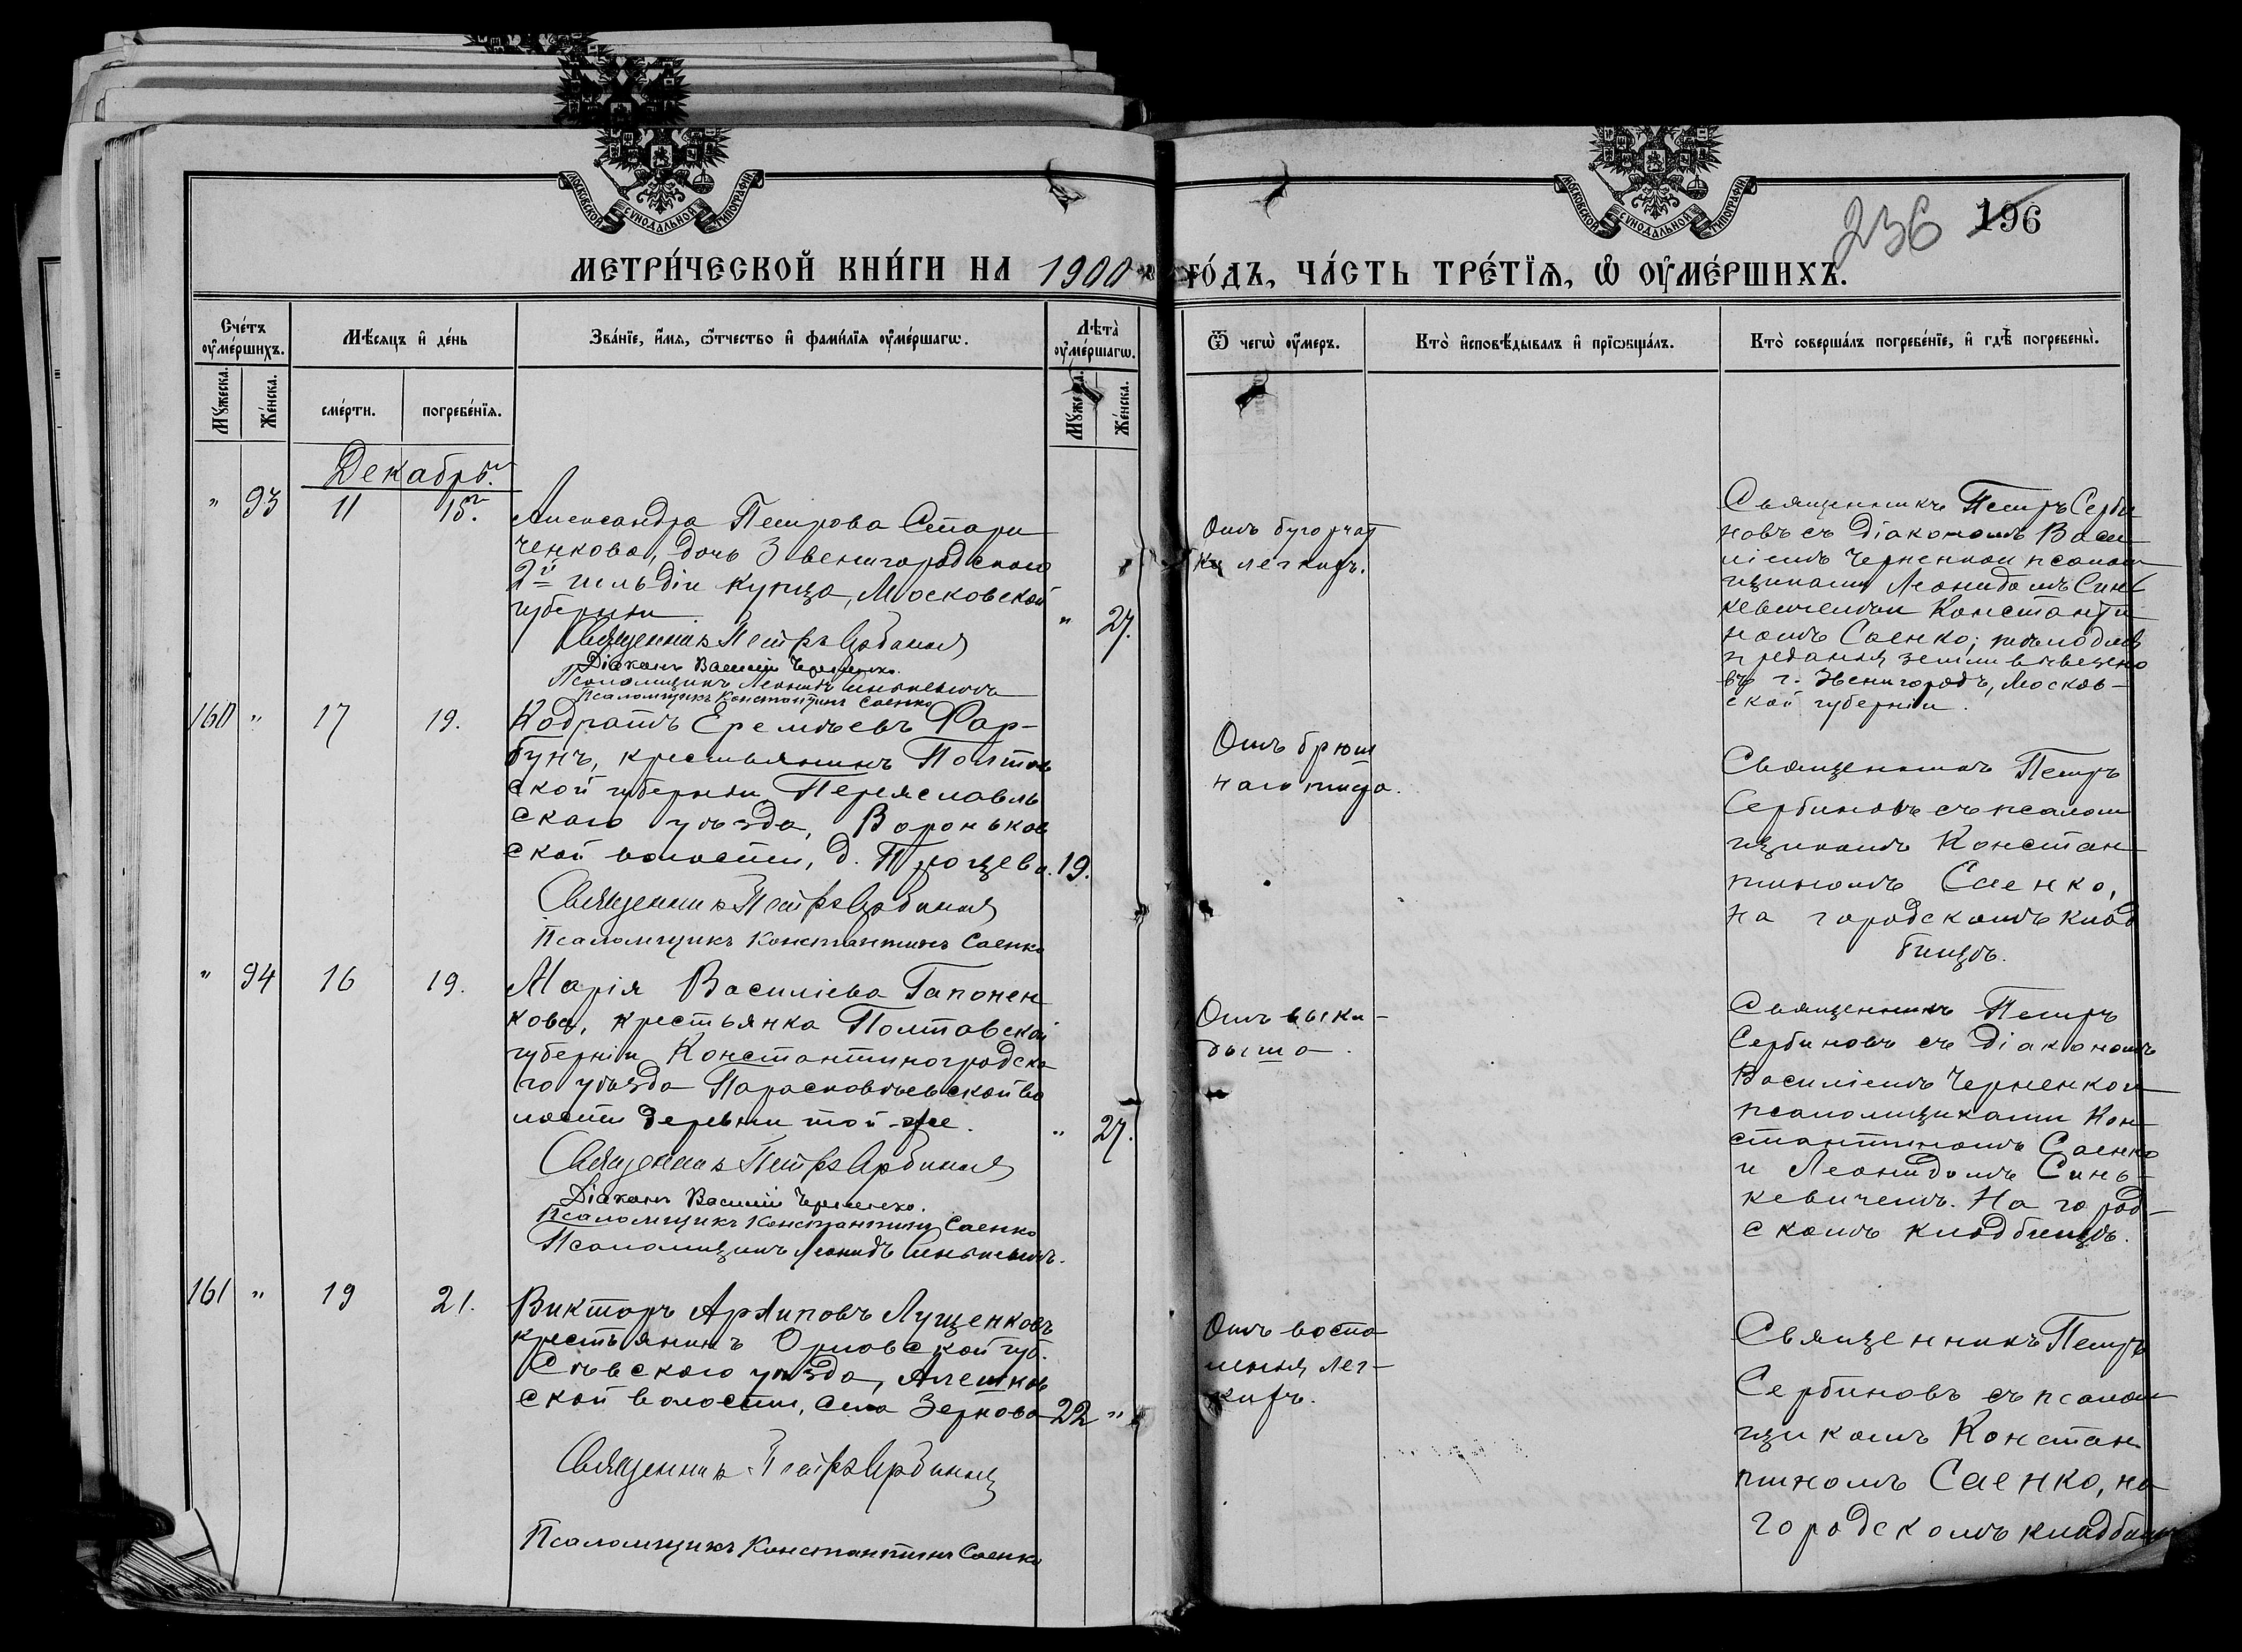 МОСКОВСКОЙ СѴНОДАЛЬНОЙ ТИПОГРАФІИ
МОСКОВСКОЙ СѴНОДАЛЬНОЙ ТИПОГРАФІИ
236 196
МЕТРИ́ЧЕСКОЙ КНИ́ГИ НА 1900 ГО́ДЪ, ЧА́СТЬ ТРЕ́ТІѦ, Ѡ҆ ОУ҆МЕ́РШИХЪ.
Сче́тъ
оу҆ме́ршихъ.
Мѣ́сѧцъ и҆ де́нь
Зва́нїе, и҆́мѧ, ѻ҆́тчество и҆ фами́лїѧ оу҆ме́ршагѡ.
Лѣта̀
оу҆ме́ршагѡ.
Ѿ чегѡ̀ оу҆́меръ.
Кто̀ и҆сповѣ́дывалъ и҆ прїѡбща́лъ.
Кто̀ соверша́лъ погребе́нїе, и҆ гдѣ̀ погребены̀.
Мꙋ́жеска.
Же́нска.
сме́рти.
погребе́нїѧ.
Мꙋ́жеска.
Же́нска.
Декабрь.
" 93 11 15.
Александра Петрова Стари
ченкова, дочь Звенигородскаго
2й гильдіи купца, Московской
губерніи " 27.
Священник Петръ Сербинов
Діаконъ Василій Черненко.
Псаломщикъ Леонидъ Синькевичъ
Псаломщикъ Константинъ Саенко
Отъ бугорчат
ки легкихъ.
Священникъ Петръ Серби
новъ съ діакономъ Васи
ліемъ Черненкои псалом
щиками Леонидомъ Синь
кевичемъи Константи
номъ Саенко;
преданія земли
въ г. Звенигородъ, Москов-
ской губерніи.
160 " 17 19.
Кодратъ Еремѣевъ Фар-
бунъ, крестьянинъ Полтав
ской губерніи Переяславль
скаго уѣзда, Вороньков
ской волости, д. 19.
Священник Петръ Сербинов
Псаломщикъ Константинъ Саенко
Отъ брюш
наго тифа.
Священникъ Петръ
Сербиновъ съ псалом
щикомъ Констан
тиномъ Саенко,
на городскомъ клад
бищѣ.
" 94 16 19.
Марія Василіева Гапонен
кова, крестьянка Полтавской
губерніи Константиноградска
го уѣзда Парасковѣевской во
лости деревни той-же. " 27.
Священник Петръ Сербинов
Діаконъ Василій Черненко.
Псаломщикъ Константинъ Саенко
Псаломщикъ Леонидъ Синькевичъ.
Отъ выки-
дыша.
Священникъ Петръ
Сербиновъ съ діакономъ
Василіемъ Черненкои
псаломщиками Кон-
стантиномъ Саенко
и Леонидомъ Синь-
кевичемъ. На город-
скомъ кладбищѣ.
161 " 19 21.
Викторъ Архиповъ Лущенковъ
крестьянинъ Орловской губ.
Сѣвского уѣзда, Алешков
ской волости, села Зернова 22 "
Священник Петръ Сербинов
Псаломщикъ Константинъ Саенко
Отъ воспа
ленія лег-
кихъ.
Священникъ Петръ
Сербиновъ съ псалом
щикомъ Констан
тиномъ Саенко, на
городскомъ кладбищ